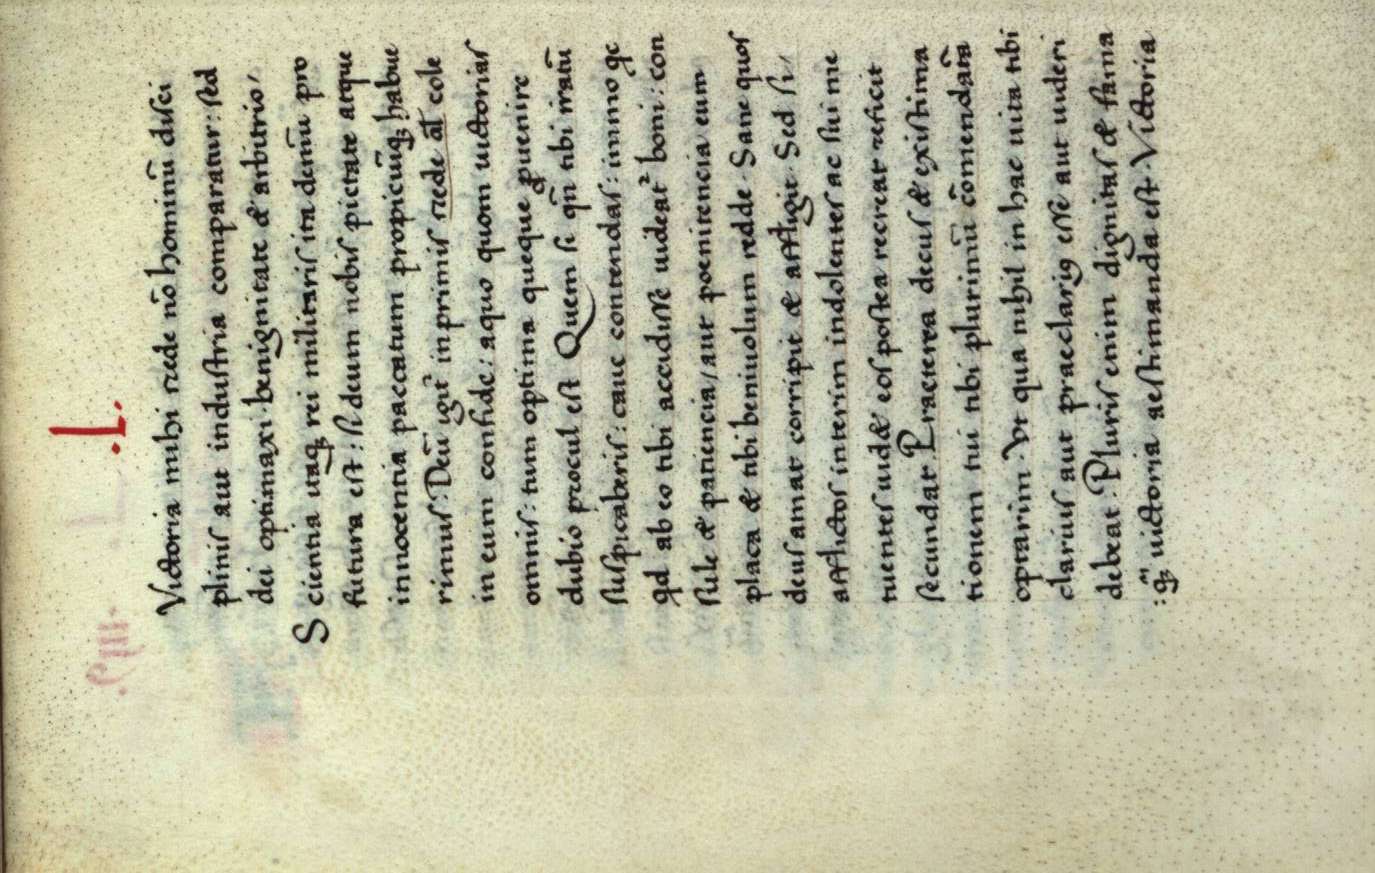 .L.
Victoria mihi crede nō hominū disci
plinis aut industria comparatur: sed
dei optimaxi benignitate & arbitrio,
Scientia uāq rei militaris ita demū pro
futura est: si deum nobis pietate atque
innocentia paccatum propiciūq habue
rimus: Deū igit̄ in primis crede at̄ cole
in eum confide: a quo quom uictorias
omnis: tum optima queque ꝓuenire
dubio procul est Quem si qn̄ tibi iratū
suspicaberis: caue contendas: immo qc
qd ab eo tibi accidisse uideat᷑ boni: con
sule & paciencia / aut poenitencia eum
placa & tibi beniuolum redde. Sane quos
deus amat corripit & affligit. Sed si,
afflictos interim indolenter ac sui me
tuentes uid& eos postea recreat reficit
secundat Praeterea decus & existima
tionem tui tibi plurimū cōmendatā
optarim. Vt qua nihil in hac uita tibi
clarius aut praeclariꝰ esse aut uideri
debeat. Pluris enim dignitas & fama
: qꝫ uictoria aestimanda est. Victoria